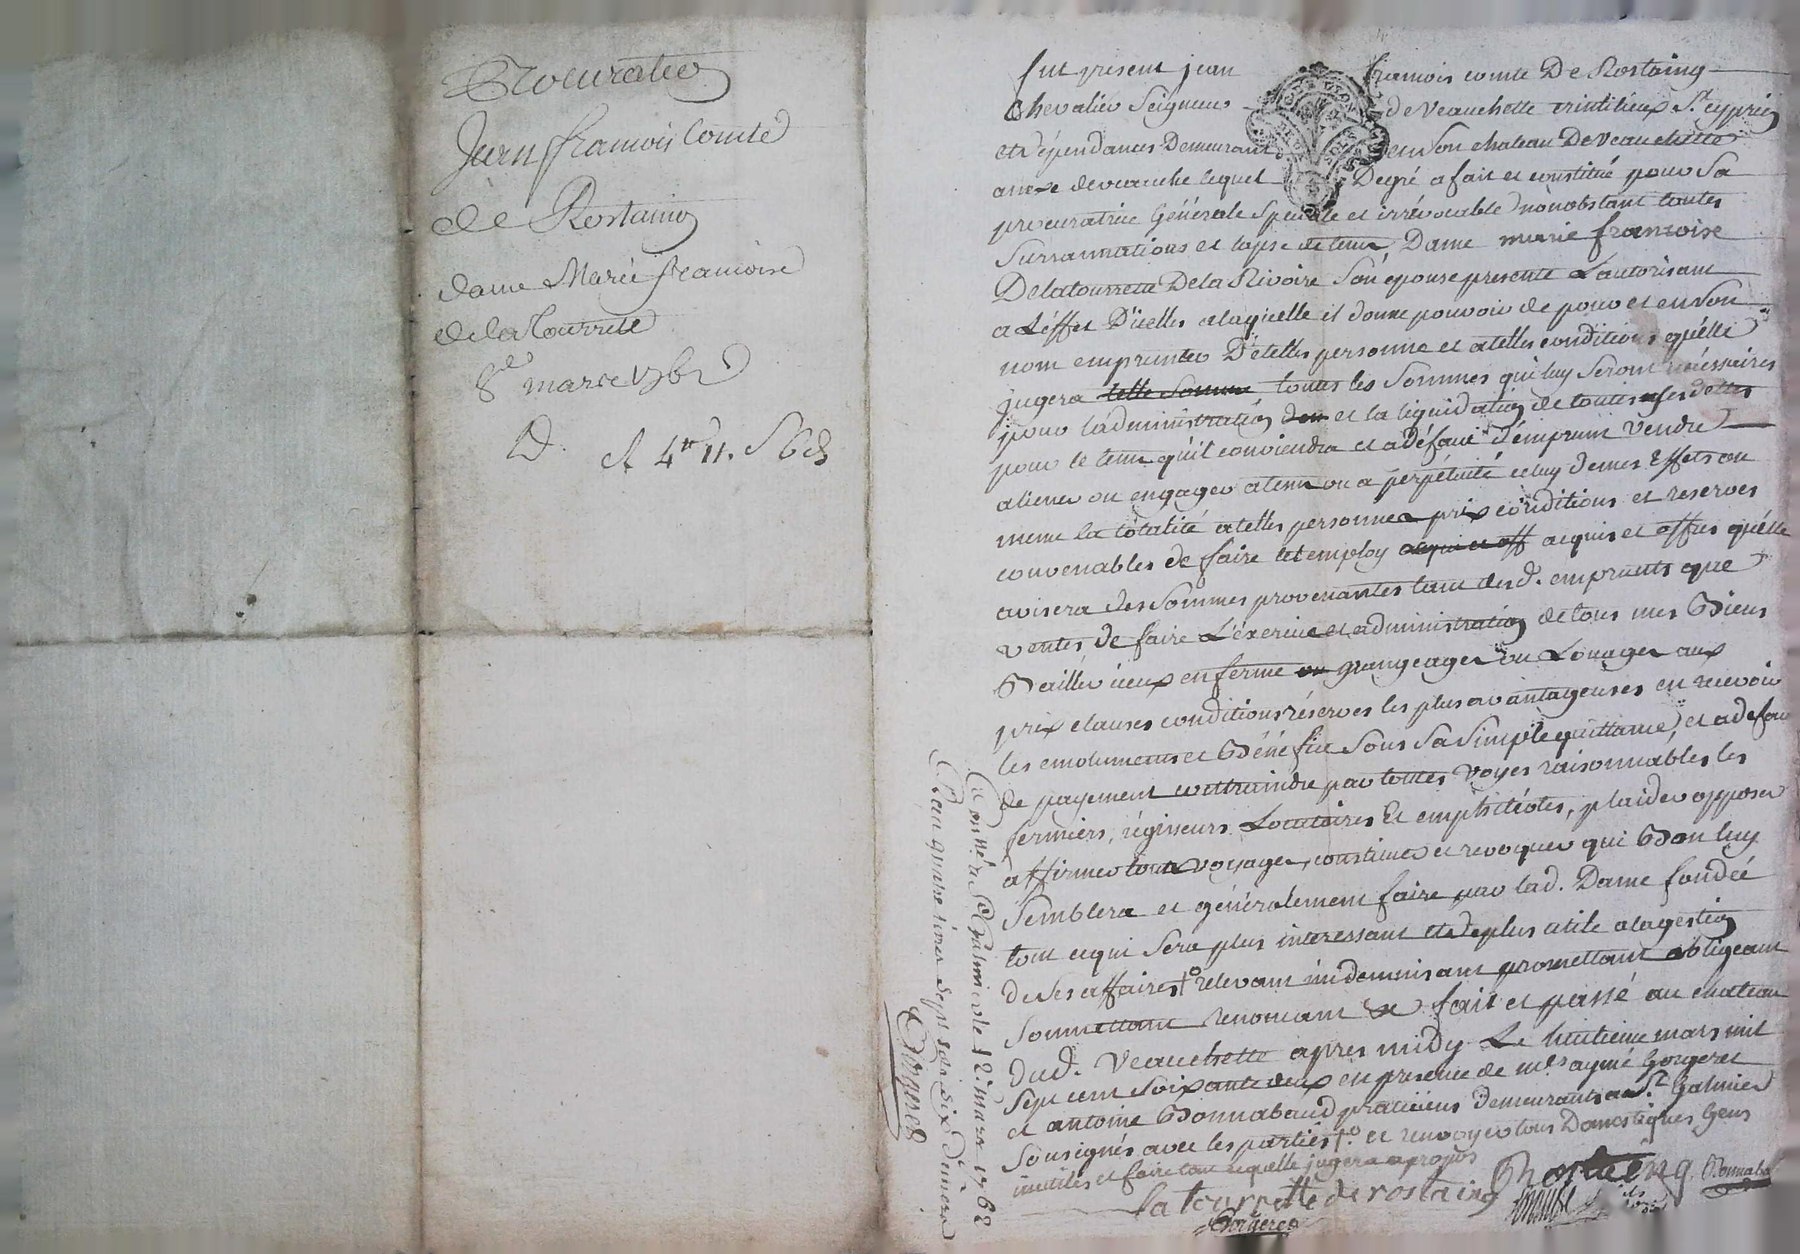 Procuration
Jean françois Comte
de Rostaing
dame Marie francoise
de la Tourrette
8e mars 1762
fut present jean françois comte De Rostaing
Chevalier Seigneur de Veauchette St cyprien
et dépendances Demeurant en Son chateau De Veauchette
lequel De gré a fait et constitué pour Sa
procuratrice Générale Speciale et irrévocable nonobstant toutes
Surrannations et laps de tems Dame marie françoise
Delatourrette De la Rivoire Son épouse presente L'autorisant
a L'éffet D'icelles a laquelle il donne pouvoir de pour et en Son
nom emprunter De telles personne et a telles conditions qu'elle
jugera telle Somme toutes les Sommes qui luy Seront nécéssaires
pour l'administration et la liquidation de toutes ses dettes
pour le tems qu'il conviendra et a Défaut d'emprunt Vendre
aliener ou engager a tems ou a perpétuité de mes Effets ou
meme la totalité a telles personnes prix conditions et reserves
convenables de faire let employ acquis et offres qu'elle
avisera des Sommes provenantes tant des d. emprunts que
ventes de faire L'éxercice et administration de tous mes Biens
Bailler iceux en ferme ou grangeages ou Louages aux
prix clauses conditions réserves les plus avantageuses en recevoir
les emolumens et Bénéfice Sous Sa Simple quittance, et a defaut
de payement contraindre par toutes Voyes raisonnables les
fermiers, régisseurs Locataires Et emphiteotes, plaider opposer
affirmer tous voyages, constituer et revoquer qui Bon luy
Semblera et généralement faire par lad. Dame fondée
tout ce qui Sera plus interessant et de plus utile a la gestion
de Ses affaires relevant indemnisant promettant obligeant
Soumettant renoncant fait et passé au chateau
dud. Veauchette apres midy Le huitieme mars mil
Sept cent Soixante deux en presence de mes aymé Gorgeret
et antoine Bonnabaud praticiens demeurants a St Galmier
Sousignés avec les parties et renvoyer tous Domestiques Gens
inutiles et faire tout ce qu'elle jugera a propos
Rostaing Bonnabaud
la tourrette de rostaing
Gorgeret
Controllé a St Galmier le 12e mars 1762
Reçu quatre livres sept sols six deniers
Gorgeret